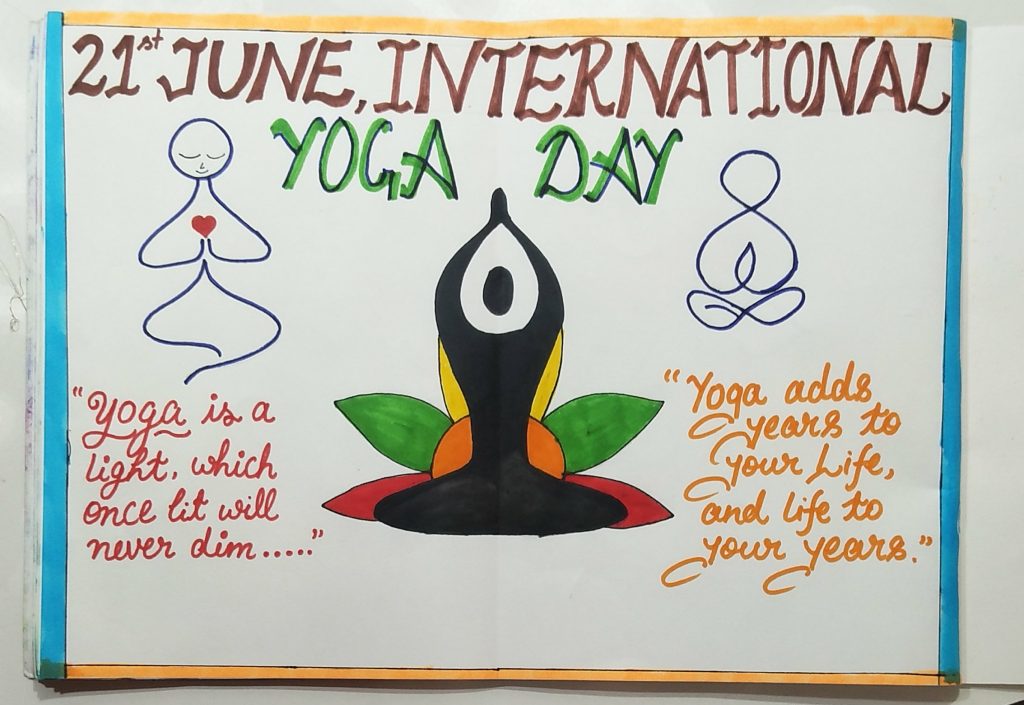 21st JUNE, INTERNATIONAL
YOGA DAY
"Yoga is a
light, which
once lit will
never dim....."
"Yoga adds
years to
your Life,
and life to
your years."